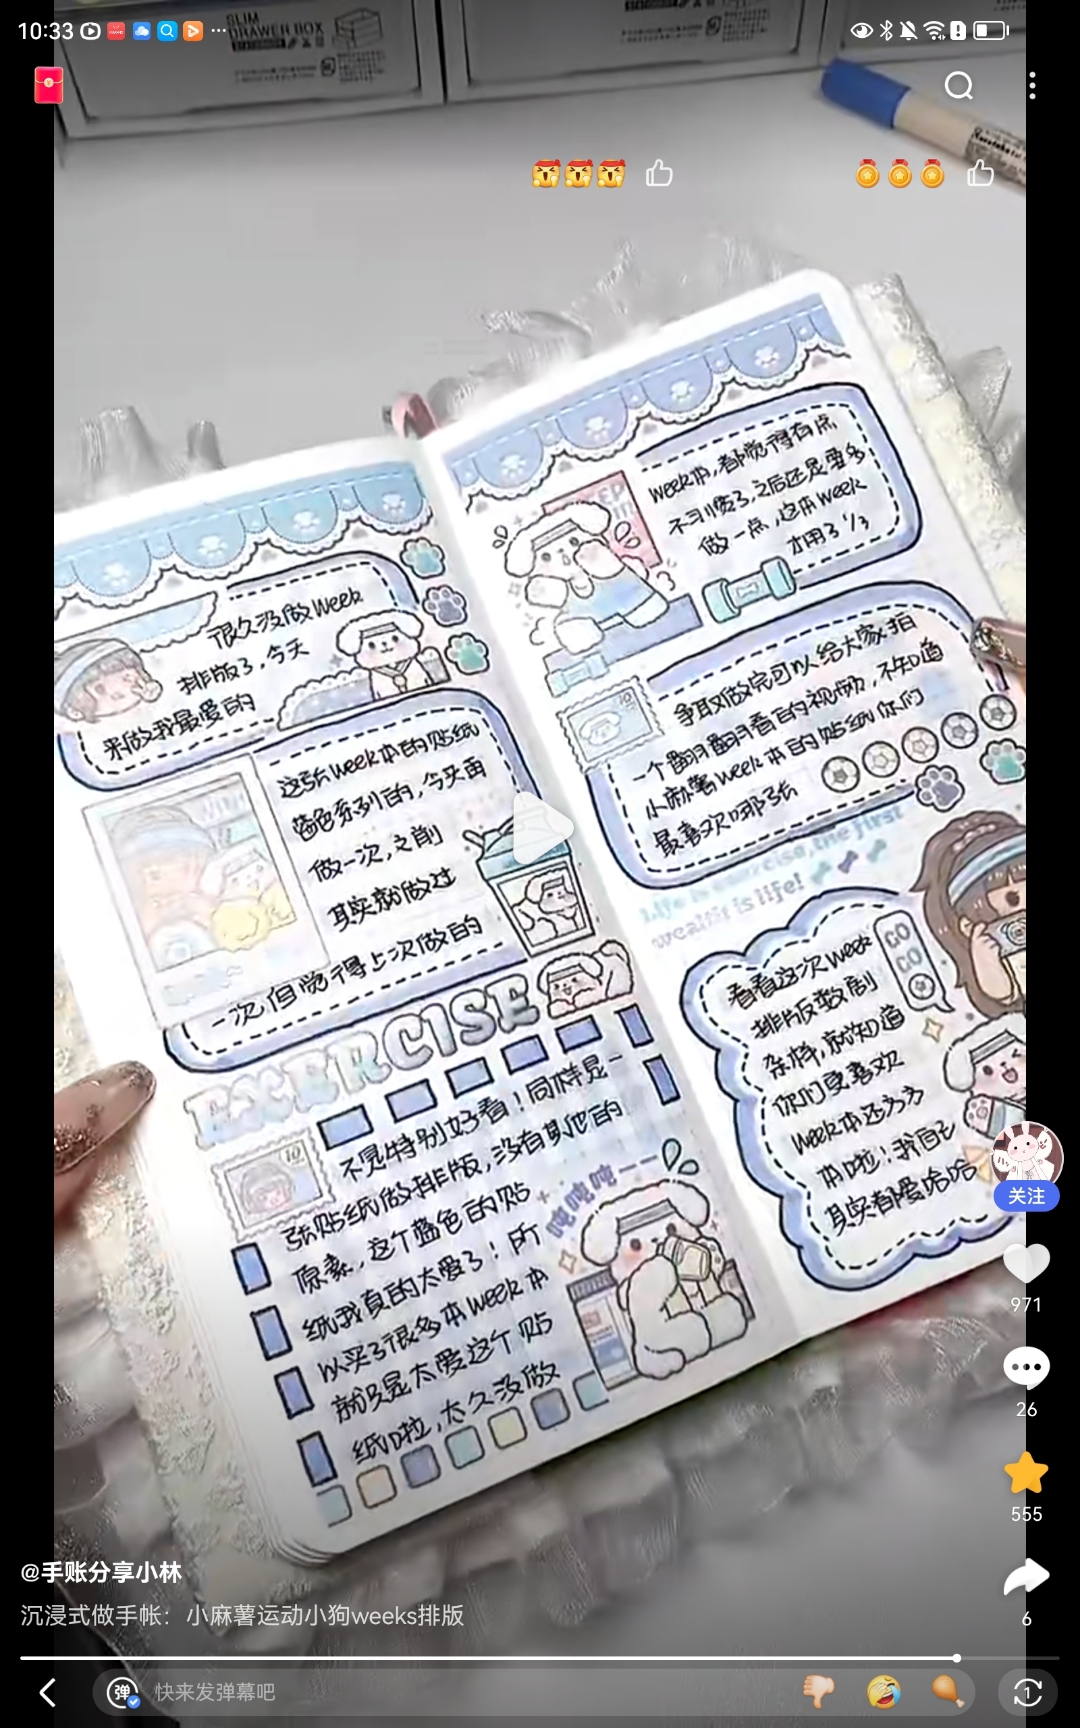 10:33
SLIM
DRAWER BOX
很久没做week
排版了,今天
来做我最爱的
这张week本的贴纸
蓝色系列的,今天再
做一次,之前
其实就做过
一次,但觉得上次做的
EXERCISE
不是特别好看!同样是一
张贴纸做排版,没有其他的
原素,这个蓝色的贴
纸我真的太爱了!所
以买了很多本week本
就只是太爱这个贴
纸啦,太久没做
10
吨吨吨——
week本,都觉得有点
不习惯了,之后还是要多
做一点,这本week
才用了1/3
争取做完可以给大家拍
一个翻翻看的视频,不知道
小麻薯week本的贴纸你们
最喜欢哪张
Life is exercise, the first
wealth is life!
看看这次week
排版数前
杂样,就知道
你们更喜欢
week本还方方
本啦!我自己
其实都爱哈哈
GO
GO
关注
971
26
555
6
@手账分享小林
沉浸式做手帐:小麻薯运动小狗weeks排版
弹
快来发弹幕吧
1